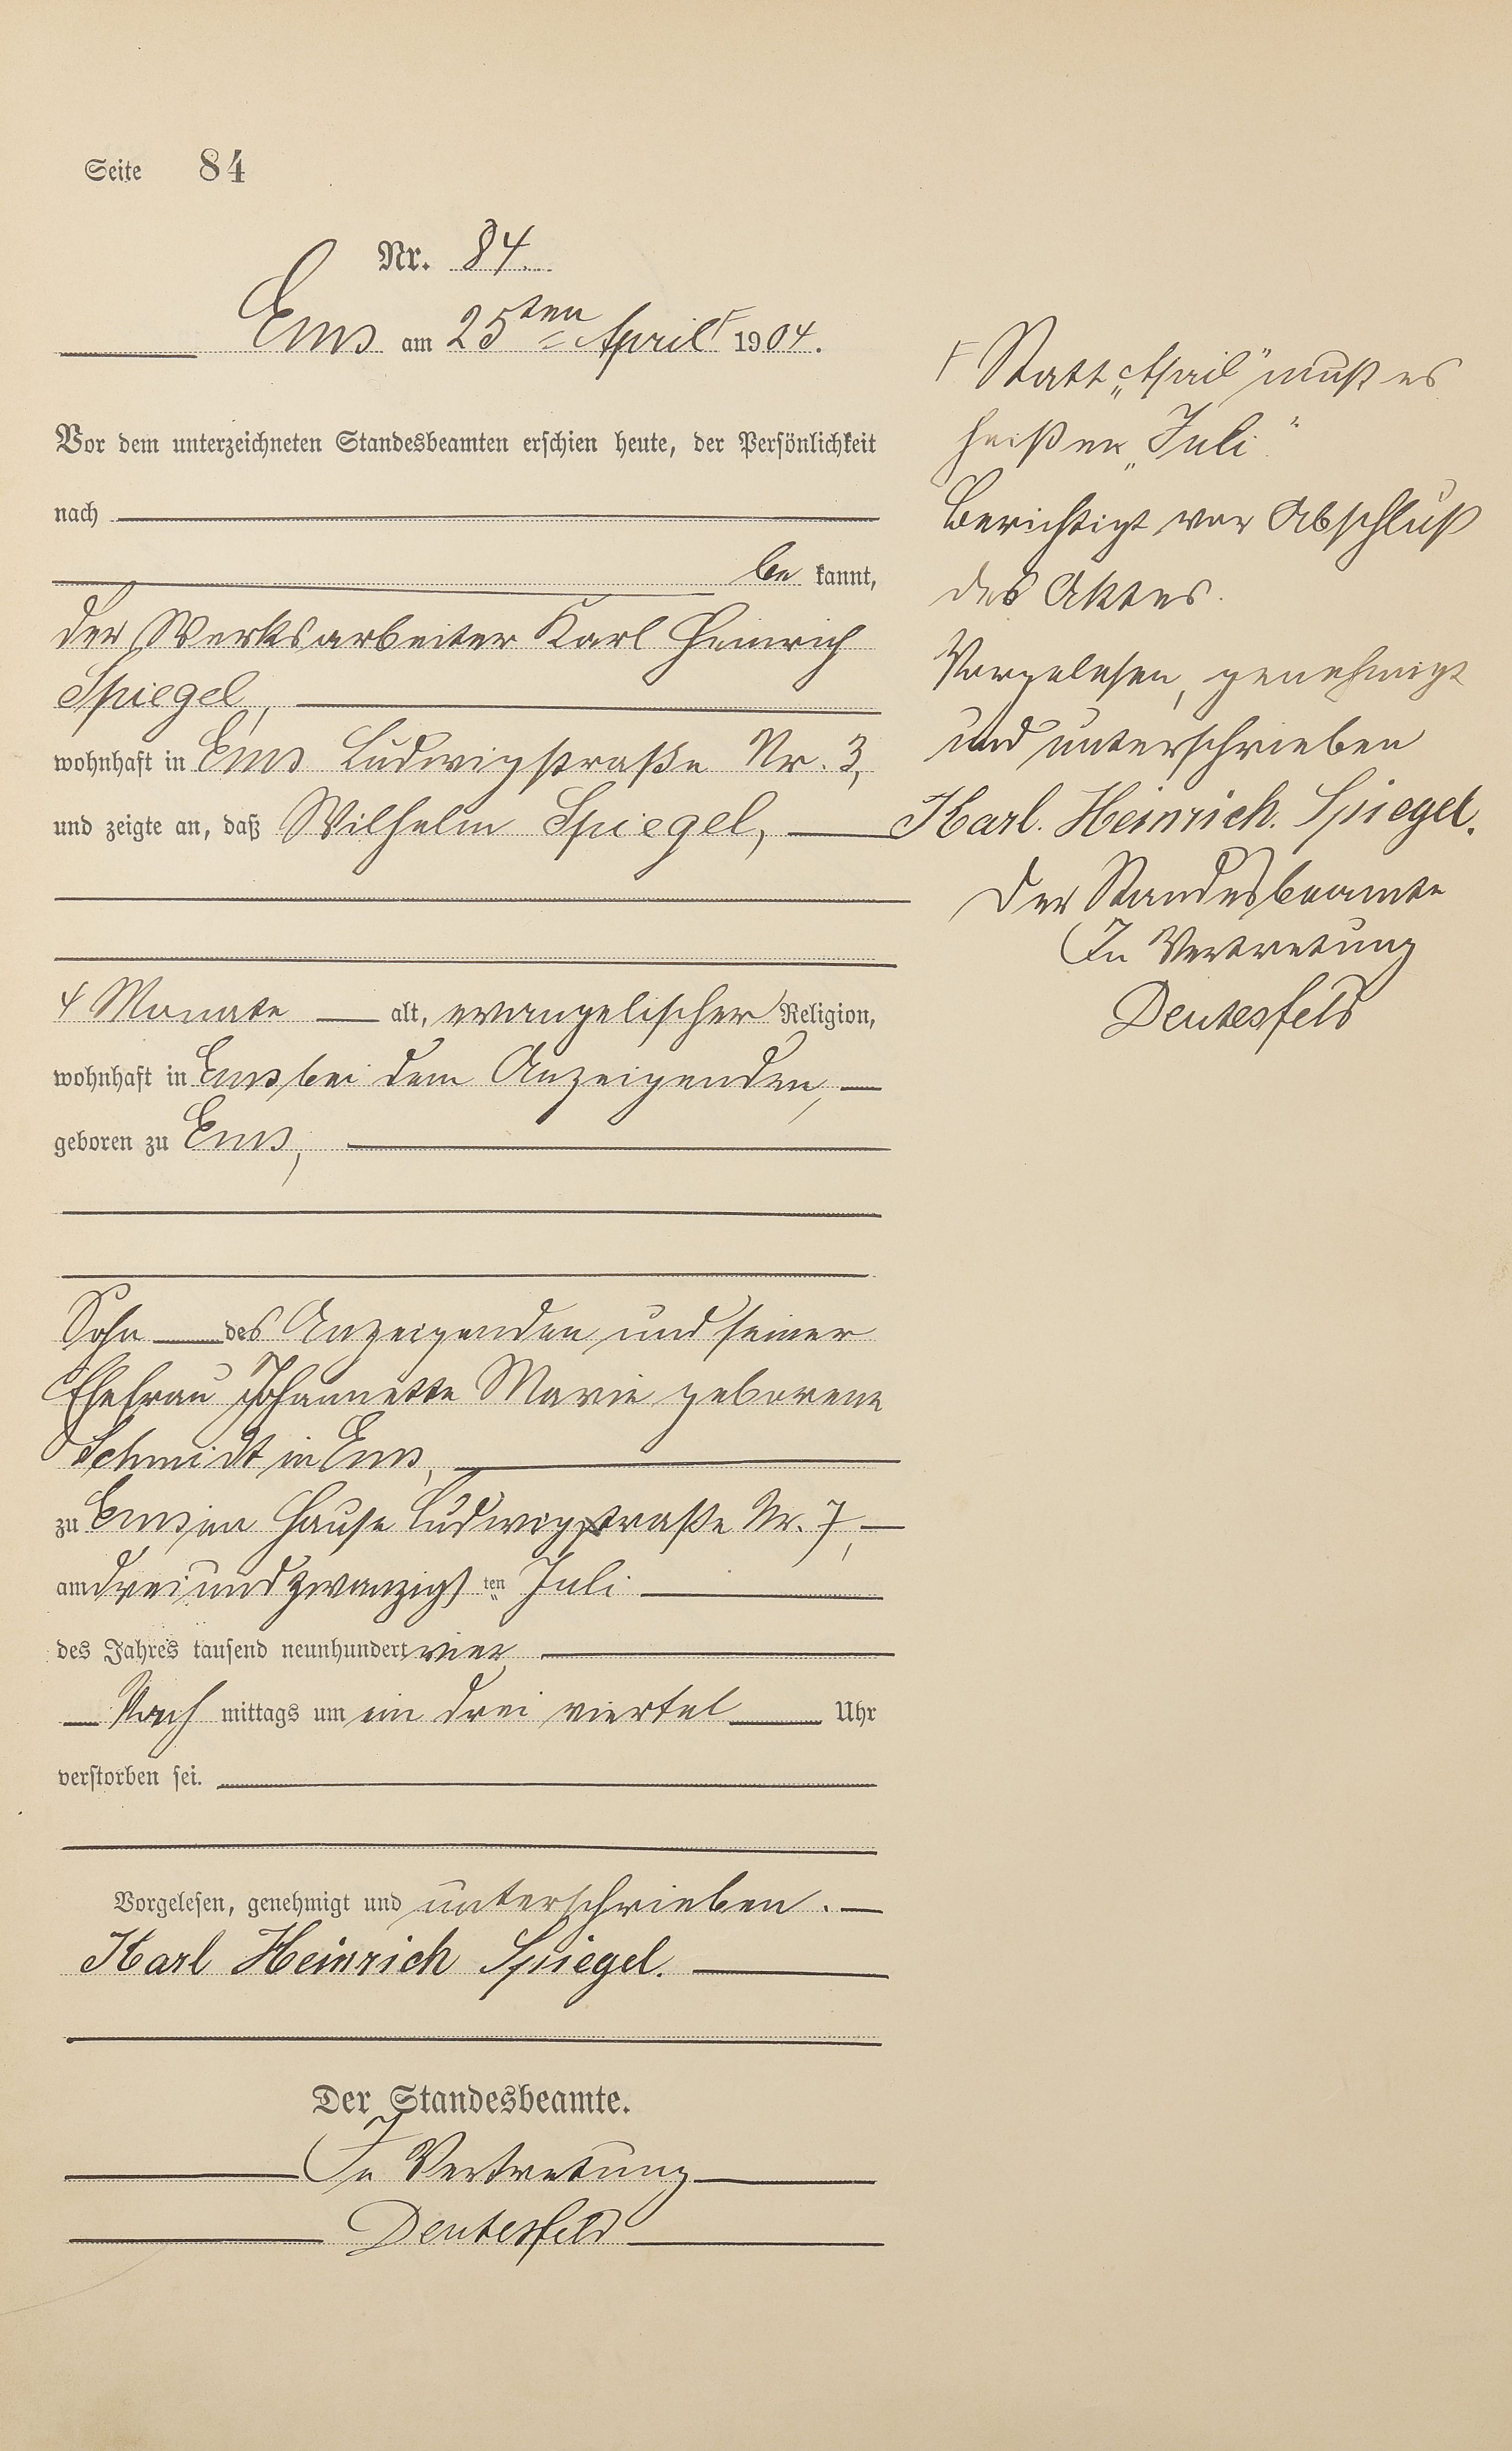 Seite 84
Nr. 84.
Ems am 25ten April 1904.
Vor dem unterzeichneten Standesbeamten erschien heute, der Persönlichkeit
nach
be kannt,
der Werksarbeiter Karl Heinrich
Spiegel,
wohnhaft in Ems Ludwigstraße Nr. 3,
und zeigte an, daß Wilhelm Spiegel,
4 Monate alt, evangelischer Religion,
wohnhaft in Ems bei dem Anzeigenden,
geboren zu Ems,
Sohn des Anzeigenden und seiner
Ehefrau Johannette Marie geborene
Schmidt in Ems,
zu Ems im Hause Ludwigstraße Nr. 7,
am dreiundzwanzigsten Juli
des Jahres tausend neunhundert vier
Nach mittags um ein drei viertel Uhr
verstorben sei.
Vorgelesen, genehmigt und unterschrieben.
Karl Heinrich Spiegel.
Der Standesbeamte.
In Vertretung
Deutesfeld
Statt „April" muß es
heißen „Juli"
Berichtigt vor Abschluß
des Aktes.
Vorgelesen, genehmigt
und unterschrieben
Karl. Heinrich. Spiegel.
Der Standesbeamte
In Vertretung
Deutesfeld